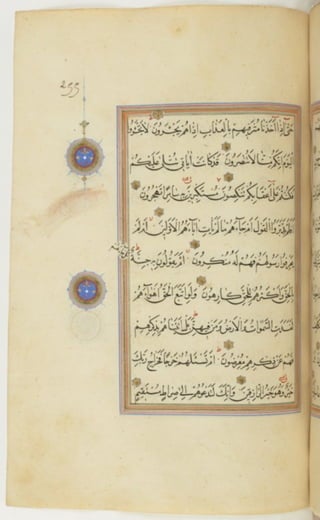 ٢٥٥
حتى اذا اخذنا مترفيهم بالعذاب اذا هم يجئرون لا تجئروا
اليوم انكم منا لا تنصرون قد كانت اياتي تتلى عليكم
فكنتم على اعقابكم تنكصون مستكبرين به سامرا تهجرون
افلم يدبروا القول ام جاءهم ما لم يات اباءهم الاولين ام لم
يعرفوا رسولهم فهم له منكرون ام يقولون به جنة بل جاءهم
بالحق واكثرهم للحق كارهون ولو اتبع الحق اهواءهم
لفسدت السموات والارض ومن فيهن بل اتيناهم بذكرهم
فهم عن ذكرهم معرضون ام تسئلهم خرجا فخراج ربك
خير وهو خير الرازقين وانك لتدعوهم الى صراط مستقيم